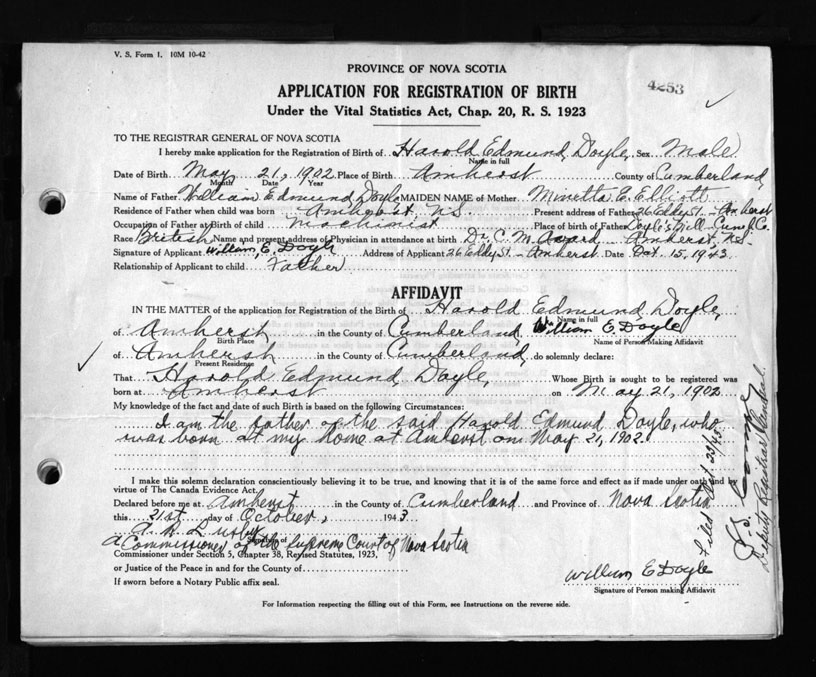 V. S. Form 1. 10M 10-42
4253
PROVINCE OF NOVA SCOTIA
APPLICATION FOR REGISTRATION OF BIRTH
Under the Vital Statistics Act, Chap. 20, R. S. 1923
TO THE REGISTRAR GENERAL OF NOVA SCOTIA
I hereby make application for the Registration of Birth of Harold Edmund Doyle, Sex Male
Name in full
Date of Birth May 21, 1902. Place of Birth Amherst County of Cumberland,
Month Date Year
Name of Father William Edmund Doyle MAIDEN NAME of Mother Minetta E. Elliott
Residence of Father when child was born Amherst N.S. Present address of Father 26 Eddy St - Amherst
Occupation of Father at Birth of child Machinist Place of birth of Father Doyle's Mill Cumb. Co.
Race British Name and present address of Physician in attendance at birth Dr. C. M. Amherst, N.S.
Signature of Applicant William, E. Doyle Address of Applicant 26 Eddy St - Amherst Date Oct. 15, 1943.
Relationship of Applicant to child Father
AFFIDAVIT
IN THE MATTER of the application for Registration of the Birth of Harold Edmund Doyle,
Name in full
of Amherst in the County of Cumberland, William E. Doyle
Birth Place Name of Person Making Affidavit
of Amhersh in the County of Cumberland, do solemnly declare:
Present Residence
That Harold Edmund Doyle, Whose Birth is sought to be registered was
born at Amherst on May 21, 1902
My knowledge of the fact and date of such Birth is based on the following Circumstances:
I am the father of the said Harold Edmund Doyle, who
was born at my home at Amherst on May 21, 1902.
I make this solemn declaration conscientiously believing it to be true, and knowing that it is of the same force and effect as if made under oath and by
virtue of The Canada Evidence Act.
Declared before me at Amherst in the County of Cumberland and Province of Nova Scotia
this 21st day of October, 1943.
A. R. Lusby
A Commissioner of the Supreme Court of Nova Scotia
Commissioner under Section 5, Chapter 38, Revised Statutes, 1923,
or Justice of the Peace in and for the County of
If sworn before a Notary Public affix seal.
William E Doyle
Signature of Person making Affidavit
For Information respecting the filling out of this Form, see Instructions on the reverse side.
Filed Oct 23/43
Deputy Registrar General.